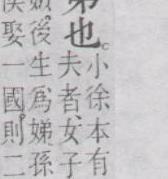 弟也。
小徐本有
夫者女子
姒後生爲娣孫
侯娶一國則二